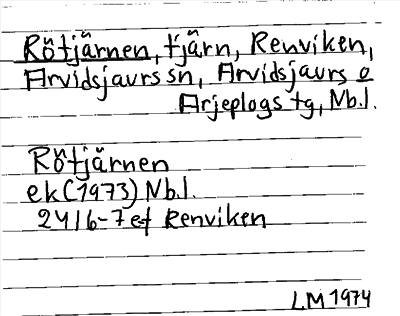 Rötjärnen, tjärn, Renviken,
Arvidsjaurs sn, Arvidsjaurs o
Arjeplogs tg, Nb.l.
Rötjärnen
ek (1973) Nb.l.
24I 6-7 ef Renviken
LM 1974